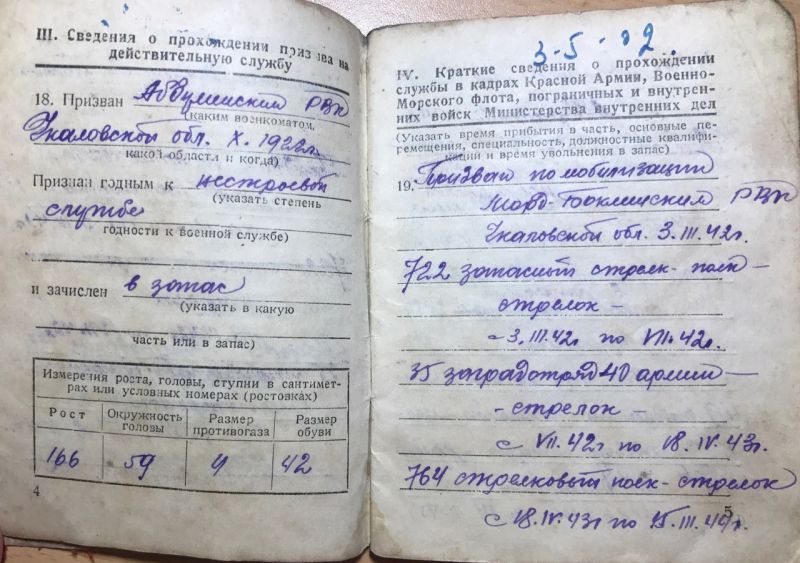 III. Сведения о прохождении призыва на
действительную службу
18. Призван Абдулинский РВК
(каким военкоматом,
Чкаловской обл. X. 1922г.
какой области и когда)
Признан годным к нестроевой
(указать степень
службе
годности к военной службе)
и зачислен в запас
(указать в какую
часть или в запас)
Измерения роста, головы, ступни в сантимет-
рах или условных номерах (ростовках)
Рост Окружность головы Размер противогаза Размер обуви
166 59 4 42
4
3-5-
IV. Краткие сведения о прохождении
службы в кадрах Красной Армии, Военно-
Морского флота, пограничных и внутрен-
них войск Министерства внутренних дел
(Указать время прибытия в часть, основные пе-
ремещения, специальность, должностные квалифи-
кации и время увольнения в запас)
19. Призван по мобилизации
Морд-Боклинский РВК
Чкаловской обл. 3.III.42г.
722 запасный стрелк- полк-
стрелок-
с 3.III.42г по VII.42г.
35 заградотряд 40 армии-
- стрелок
с VII.42г по 18.IV.43г.
764 стрелковый полк-стрелок
с 18.IV.43г по 15.III.44г.
5